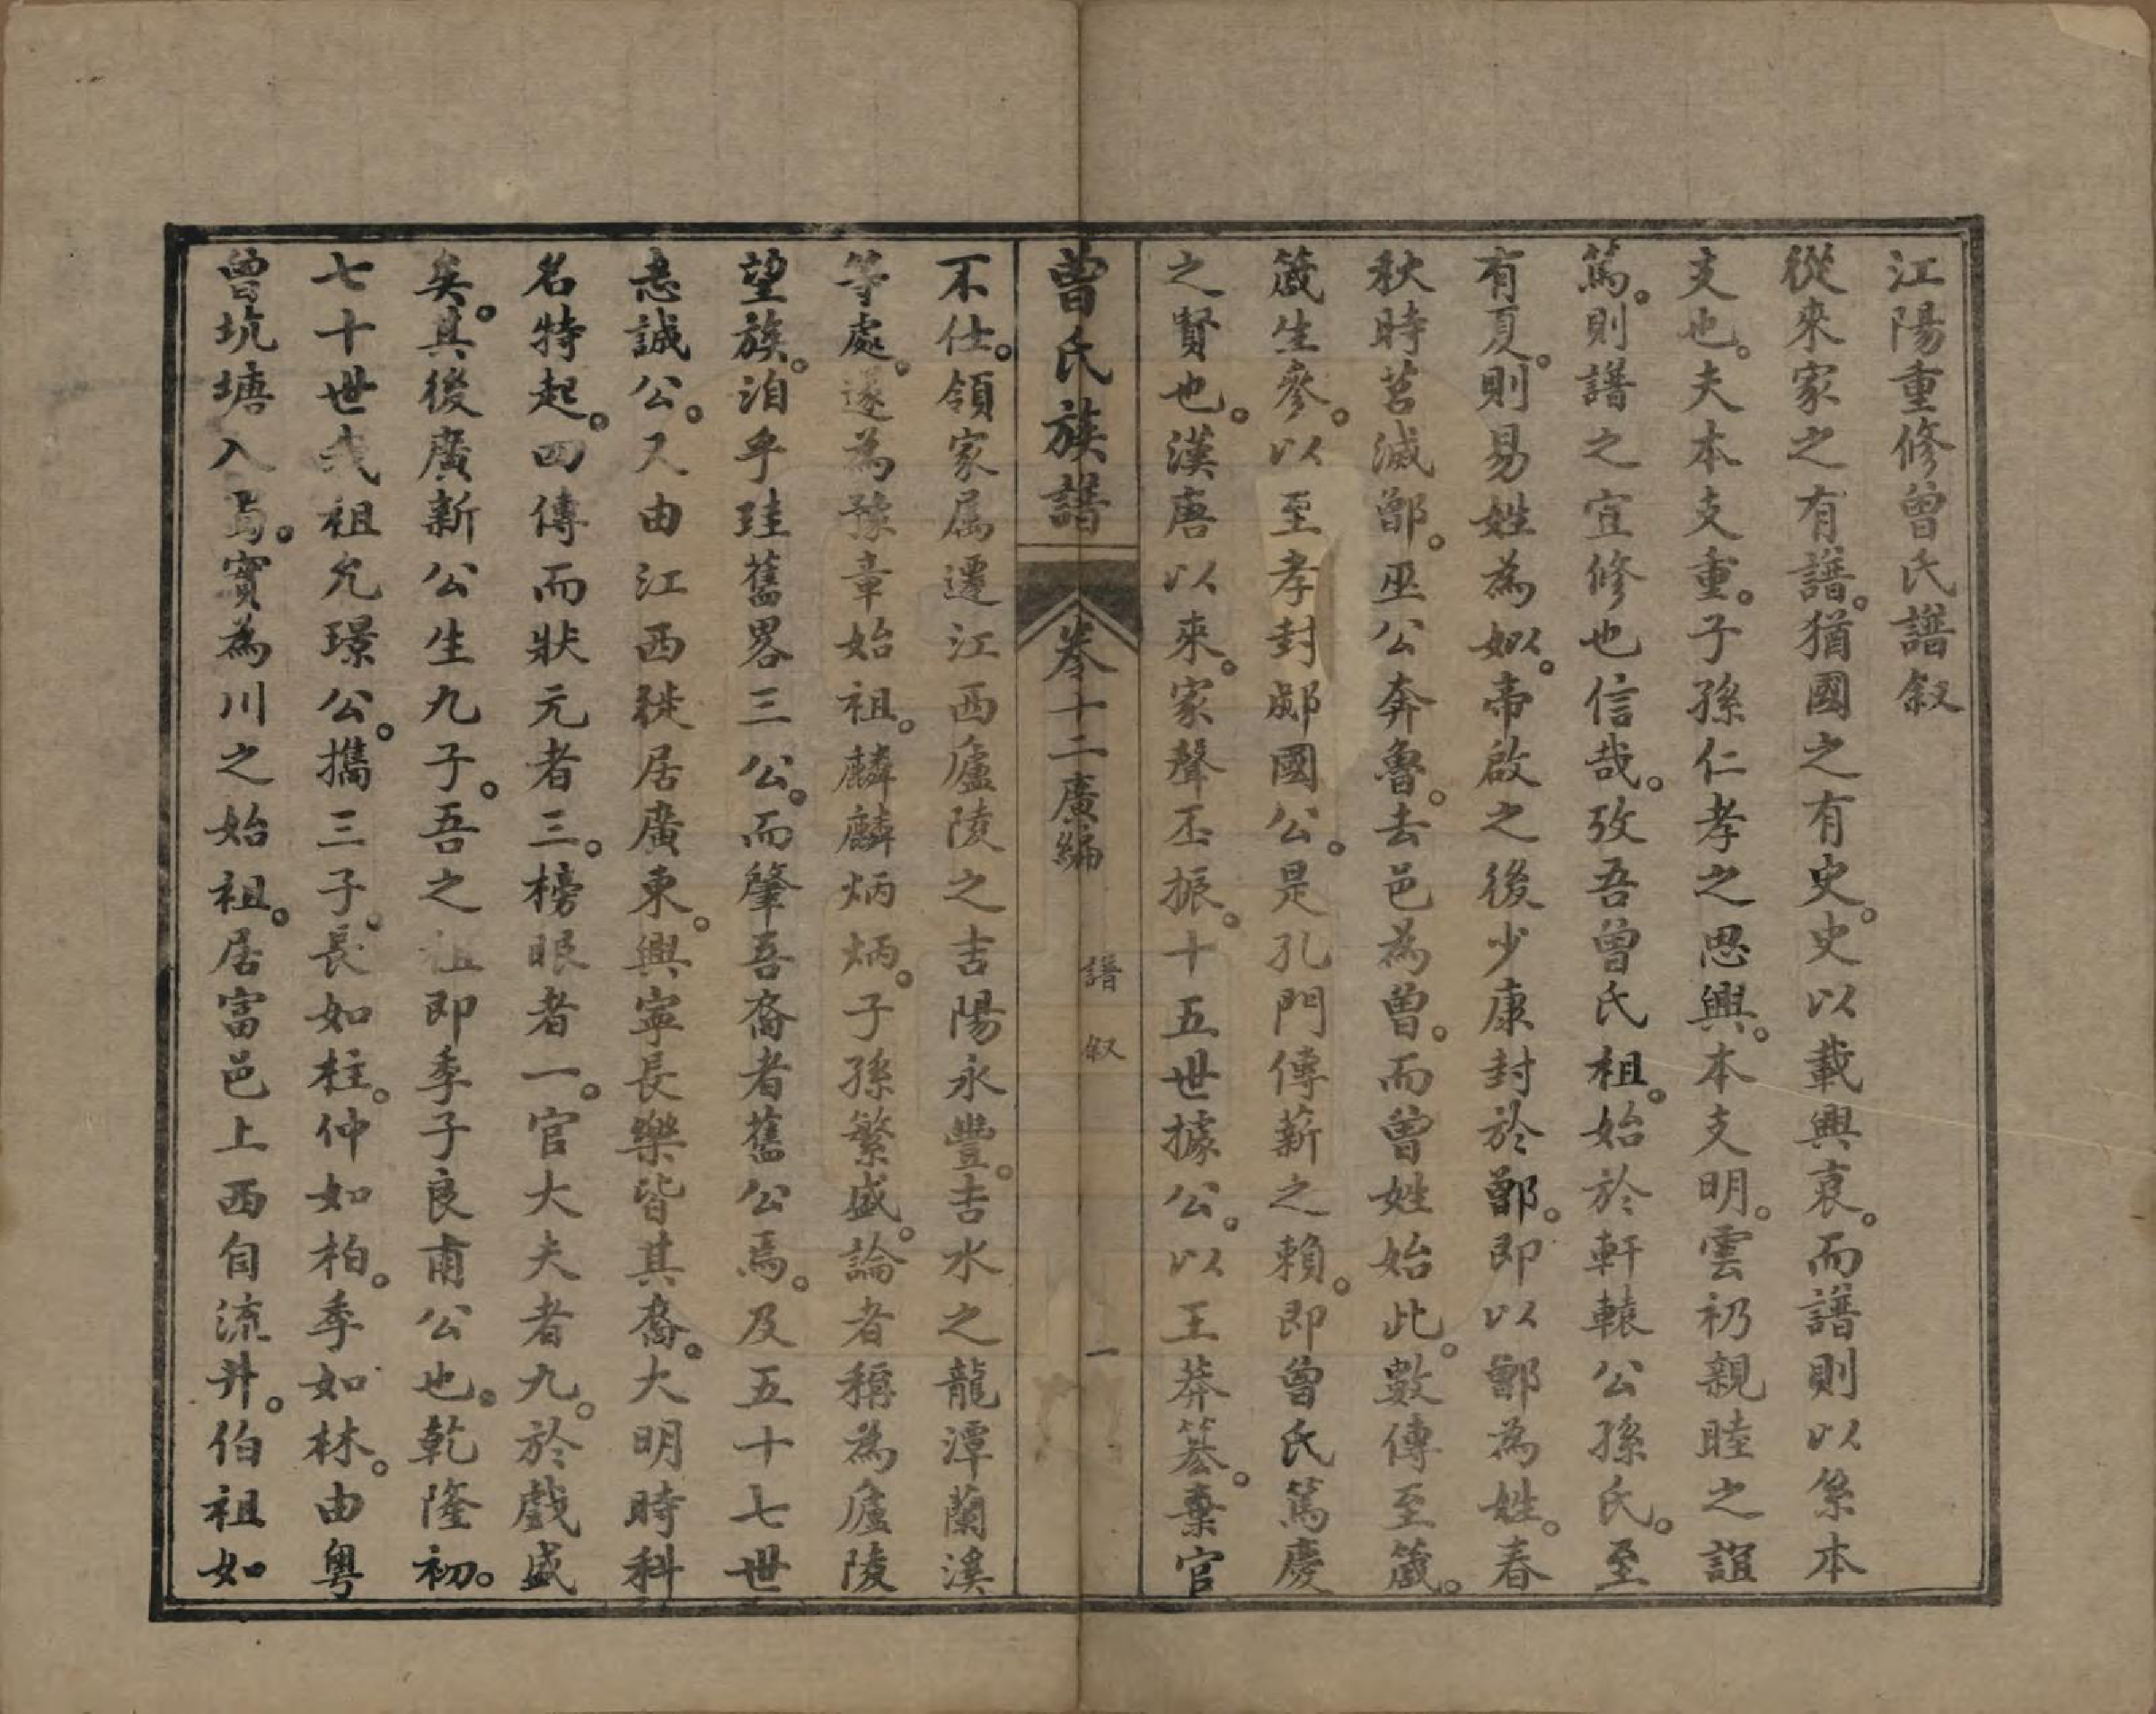 江陽重修曾氏譜叙
從來家之有譜。猶國之有史。史以載興衰。而譜則以系本
支也。夫本支重。子孫仁孝之思興。本支明。雲礽親睦之誼
篤。則譜之宜修也信哉。攷吾曾氏祖。始於軒轅公孫氏。至
有夏。則易姓為姒。帝啟之後少康封於鄫。即以鄫為姓。春
秋時莒滅鄫。巫公奔魯。去邑為曾。而曾姓始此。數傳至蒧。
蒧生參。以至孝封郕國公。是孔門傳薪之賴。即曾氏篤慶
之賢也。漢唐以來。家聲丕振。十五世據公。以王莽篡。棄官
曾氏族譜
卷十二廣編
譜叙
一
不仕。領家属遷江西廬陵之吉陽永豐。吉水之龍潭蘭溪
等處。遂為豫章始祖。麟麟炳炳。子孫繁盛。論者稱為廬陵
望族。洎乎珪舊畧三公。而肇吾裔者舊公焉。及五十七世
志誠公。又由江西徙居廣東。興寧長樂皆其裔。大明時科
名特起。四傳而狀元者三。榜眼者一。官大夫者九。於戲盛
矣。其後廣新公生九子。吾之祖即季子良甫公也。乾隆初。
七十世我祖允璟公。攜三子。長如柱。仲如柏。季如林。由粵
曾坑塘入蜀。實為川之始祖。居富邑上西自流井。伯祖如